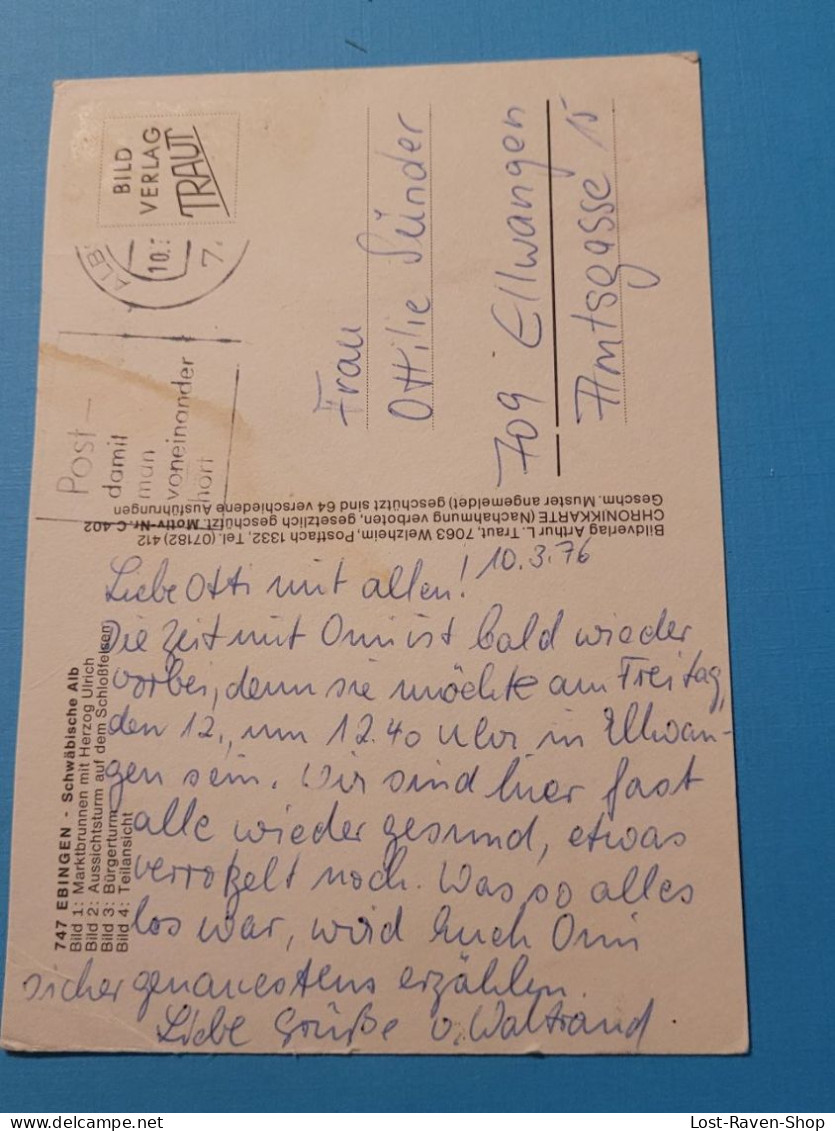 747 EBINGEN - Schwäbische Alb
Bild 1: Marktbrunnen mit Herzog Ulrich
Bild 2: Aussichtsturm auf dem Schloßfelsen
Bild 3: Bürgerturm
Bild 4: Teilansicht
10.3.76
Liebe Otti mit allen!
Die Zeit mit Omi ist bald wieder
vorbei, denn sie möchte am Freitag,
den 12., um 12.40 Uhr in Ellwan-
gen sein. Wir sind hier fast
alle wieder gesund, etwas
verrotzelt noch. Was so alles
los war, wird Euch Omi
sicher genauestens erzählen.
Liebe Grüße v. Waltraud.
Bildverlag Arthur L. Traut, 7063 Welzheim, Postfach 1332, Tel. (07182) 412
CHRONIKKARTE (Nachahmung verboten, gesetzlich geschützt. Motiv-Nr. C 402
Geschm. Muster angemeldet) geschützt sind 64 verschiedene Ausführungen
Post -
damit
man
voneinander
hört
ALB
10.3
7.
BILD
VERLAG
TRAUT
Frau
Ottilie Sünder
709 Ellwangen
Amtsgasse 15
Lost-Raven-Shop